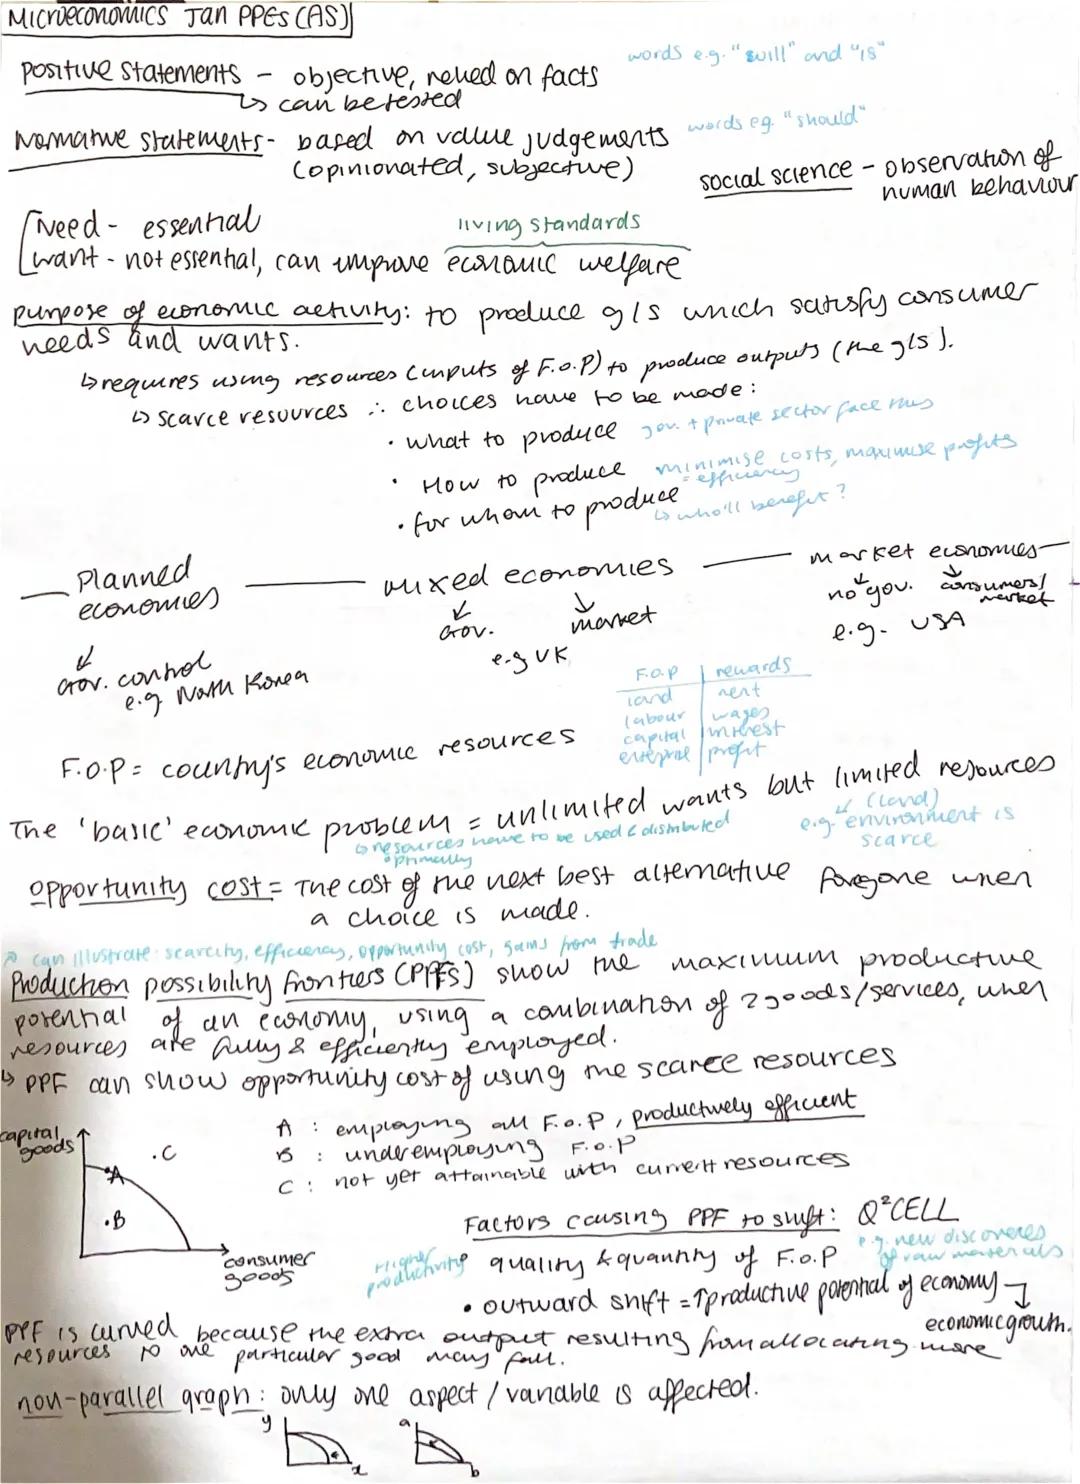 MICROECONOMICS Jan PPEs (AS)
words e.g. "will" and "is"
positive statements - objective, relied on facts
↳ can be tested
Normative statements - based on value judgements
words eg. "should"
(opinionated, subjective)
social science - observation of
human behaviour
Need - essential
living standards
want - not essential, can improve economic welfare
purpose of economic activity: to produce g/s which satisfy consumer
needs and wants.
↳ requires using resources (inputs of F.o.P) to produce outputs (the g/s).
↳ scarce resources ∴ choices have to be made:
• what to produce gov. + private sector face this
• How to produce minimise costs, maximise profits
= efficiency
• for whom to produce
↳ who'll benefit?
Planned economies
mixed economies
market economies
Gov. control
e.g North Korea
Gov. market
e.g UK
no gov. consumers/
market
e.g. USA
F.o.P | rewards
land | rent
labour | wages
capital | interest
enterprise | profit
F.O.P = country's economic resources
The 'basic' economic problem = unlimited wants but limited resources
↳ resources have to be used & distributed
optimally
(land)
e.g. environment is
scarce
Opportunity cost = The cost of the next best alternative foregone when
a choice is made.
can illustrate: scarcity, efficiency, opportunity cost, gains from trade
Production possibility frontiers (PPFs) show the maximum productive
potential of an economy, using a combination of 2 goods/services, when
resources are fully & efficiently employed.
↳ PPF can show opportunity cost of using the scarce resources
capital
goods
.C
A
.B
consumer
goods
A : employing all F.o.P, productively efficient
B : underemploying F.o.P
C : not yet attainable with current resources
Factors causing PPF to shift: Q²CELL
e.g. new discoveries
of raw materials
Higher
productivity
quality & quantity of F.o.P
• outward shift = ↑productive potential of economy →
economic growth.
PPF is curved because the extra output resulting from allocating more
resources to one particular good may fall.
non-parallel graph: only one aspect / variable is affected.
y
x
a
b